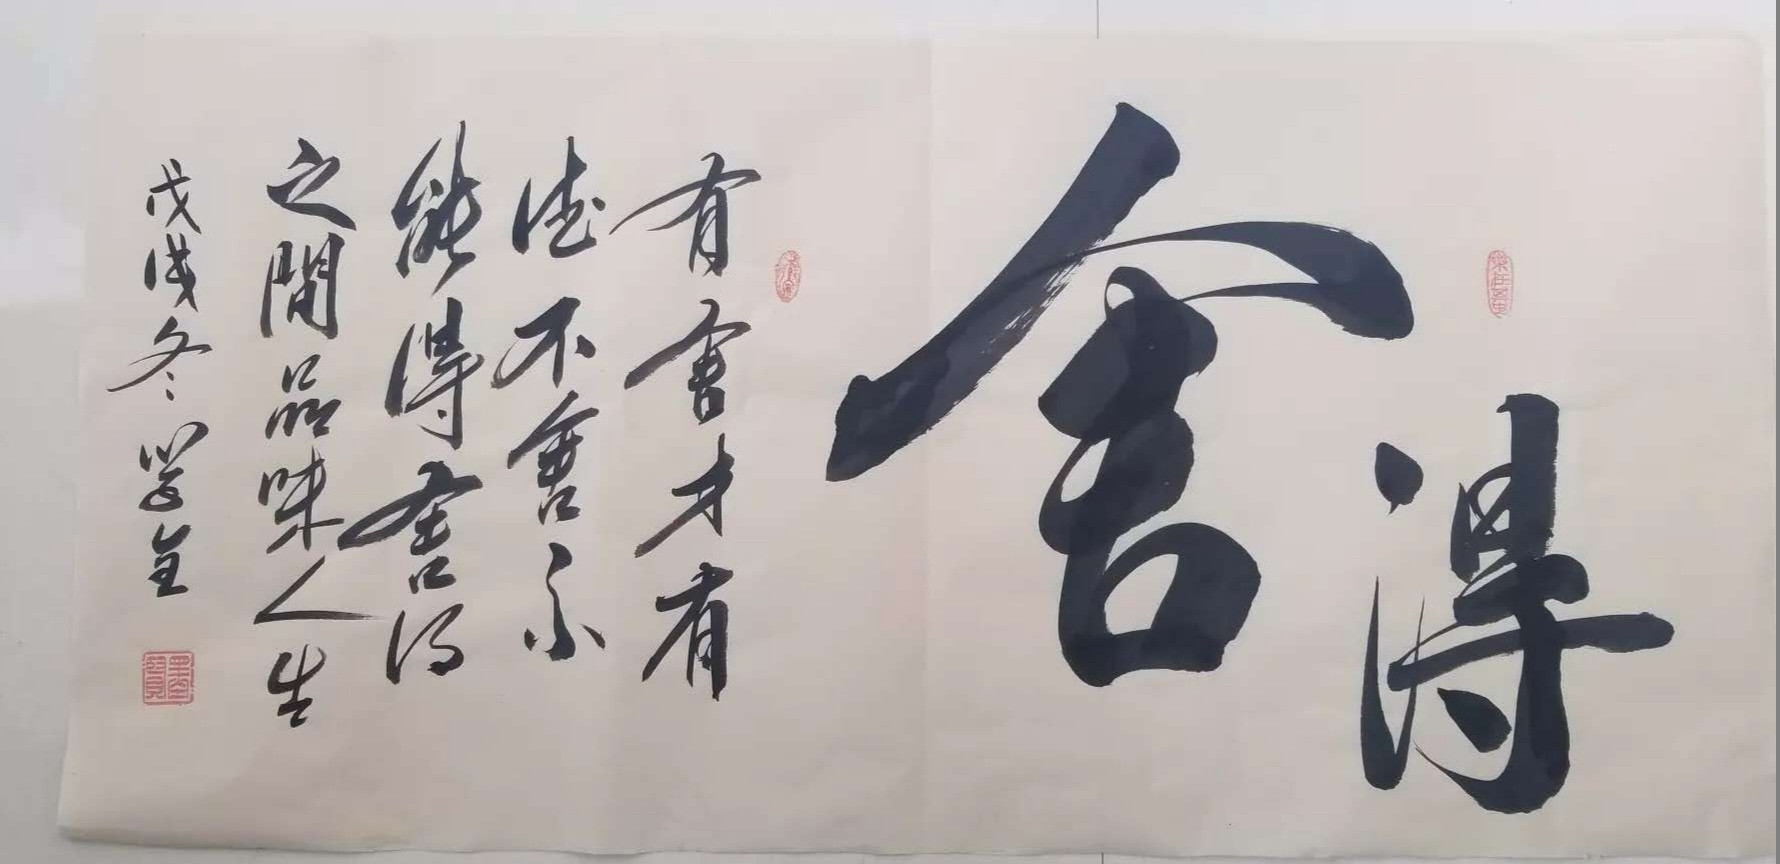 舍得
有舍才有
德不舍不
能得舍得
之間品味人生
戊戌冬